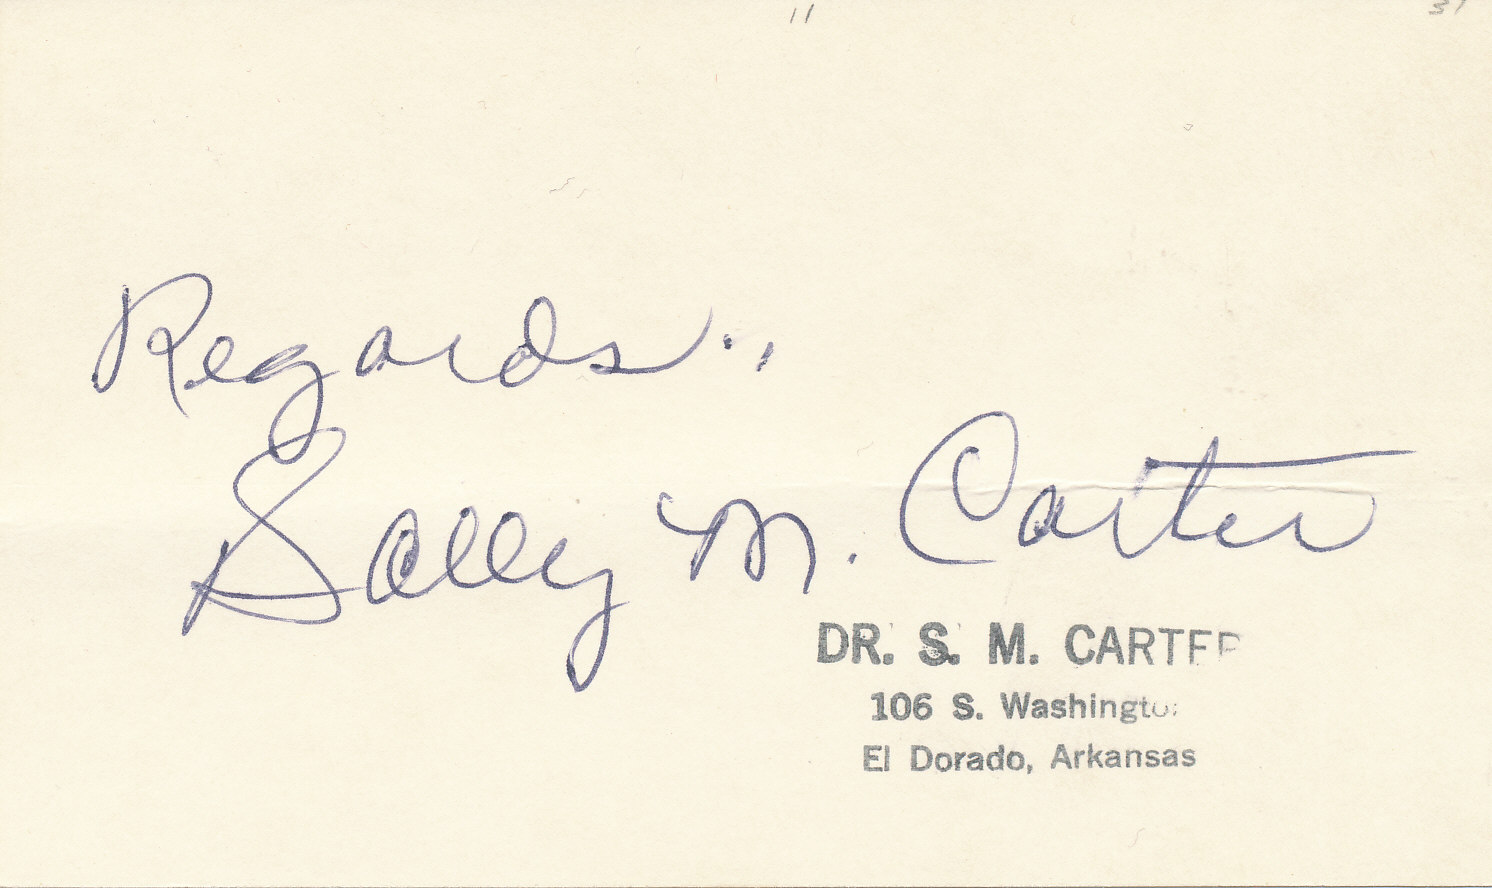 11 31
Regards..,
Sally M. Carter
DR. S. M. CARTER
106 S. Washington
El Dorado, Arkansas